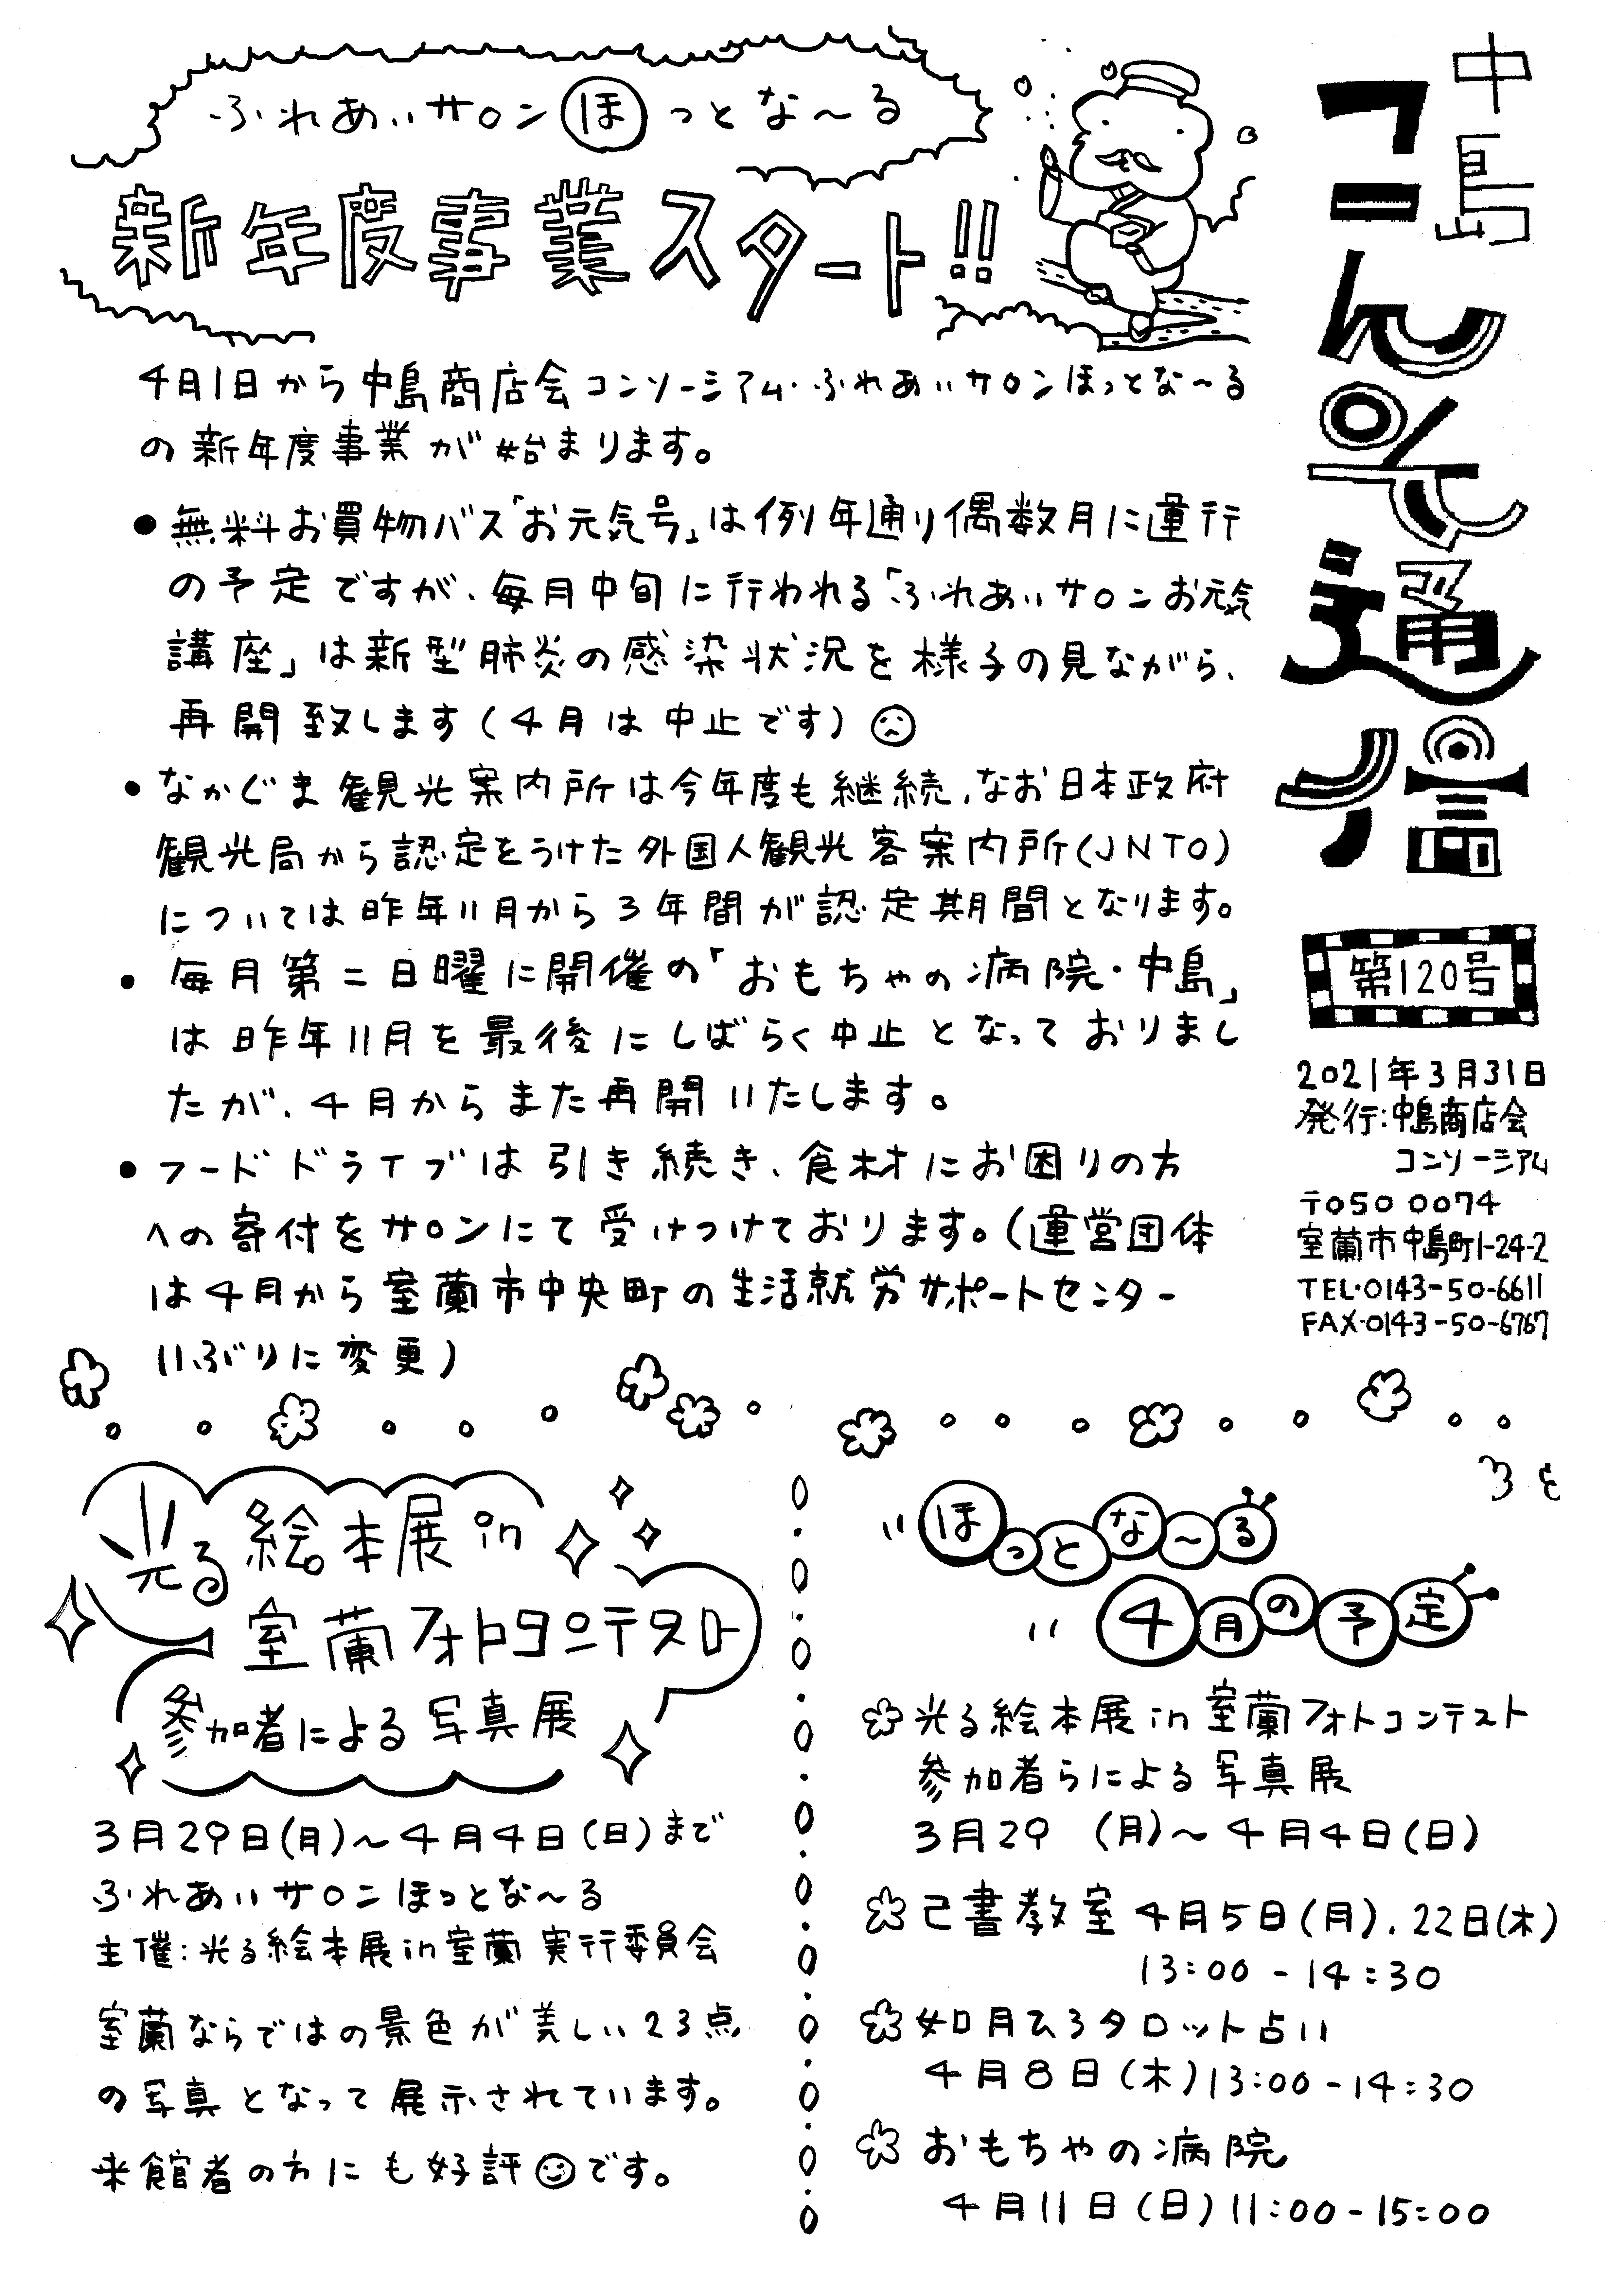 中島
コーんそ通信
第120号
2021年3月31日
発行:中島商店会
コンソーシアム
〒050 0074
室蘭市中島町1-24-2
TEL・0143-50-6611
FAX・0143-50-6767
ふれあいサロンほっとな〜る
新年度事業スタート!!
4月1日から中島商店会コンソーシアム・ふれあいサロンほっとな〜る
の新年度事業が始まります。
● 無料お買物バス「お元気号」は例年通り偶数月に運行
の予定ですが、毎月中旬に行われる「ふれあいサロンお元気
講座」は新型肺炎の感染状況を様子の見ながら、
再開致します(4月は中止です)
● なかじま観光案内所は今年度も継続、なお日本政府
観光局から認定をうけた外国人観光客案内所(JNTO)
については昨年11月から3年間が認定期間となります。
● 毎月第二日曜に開催の「おもちゃの病院・中島」
は昨年11月を最後にしばらく中止となっておりまし
たが、4月からまた再開いたします。
● フードドライブは引き続き、食材にお困りの方
への寄付をサロンにて受けつけております。(運営団体
は4月から室蘭市中央町の生活就労サポートセンター
いぶりに変更)
光る絵本展in
室蘭フォトコンテスト
参加者による写真展
3月29日(月)〜4月4日(日)まで
ふれあいサロンほっとな〜る
主催:光る絵本展in室蘭実行委員会
室蘭ならではの景色が美しい23点
の写真となって展示されています。
来館者の方にも好評です。
ほっとな〜る
4月の予定
光る絵本展in室蘭フォトコンテスト
参加者らによる写真展
3月29 (月)〜4月4日(日)
己書教室 4月5日(月).22日(木)
13:00-14:30
如月ひろタロット占い
4月8日(木)13:00-14:30
おもちゃの病院
4月11日(日)11:00-15:00